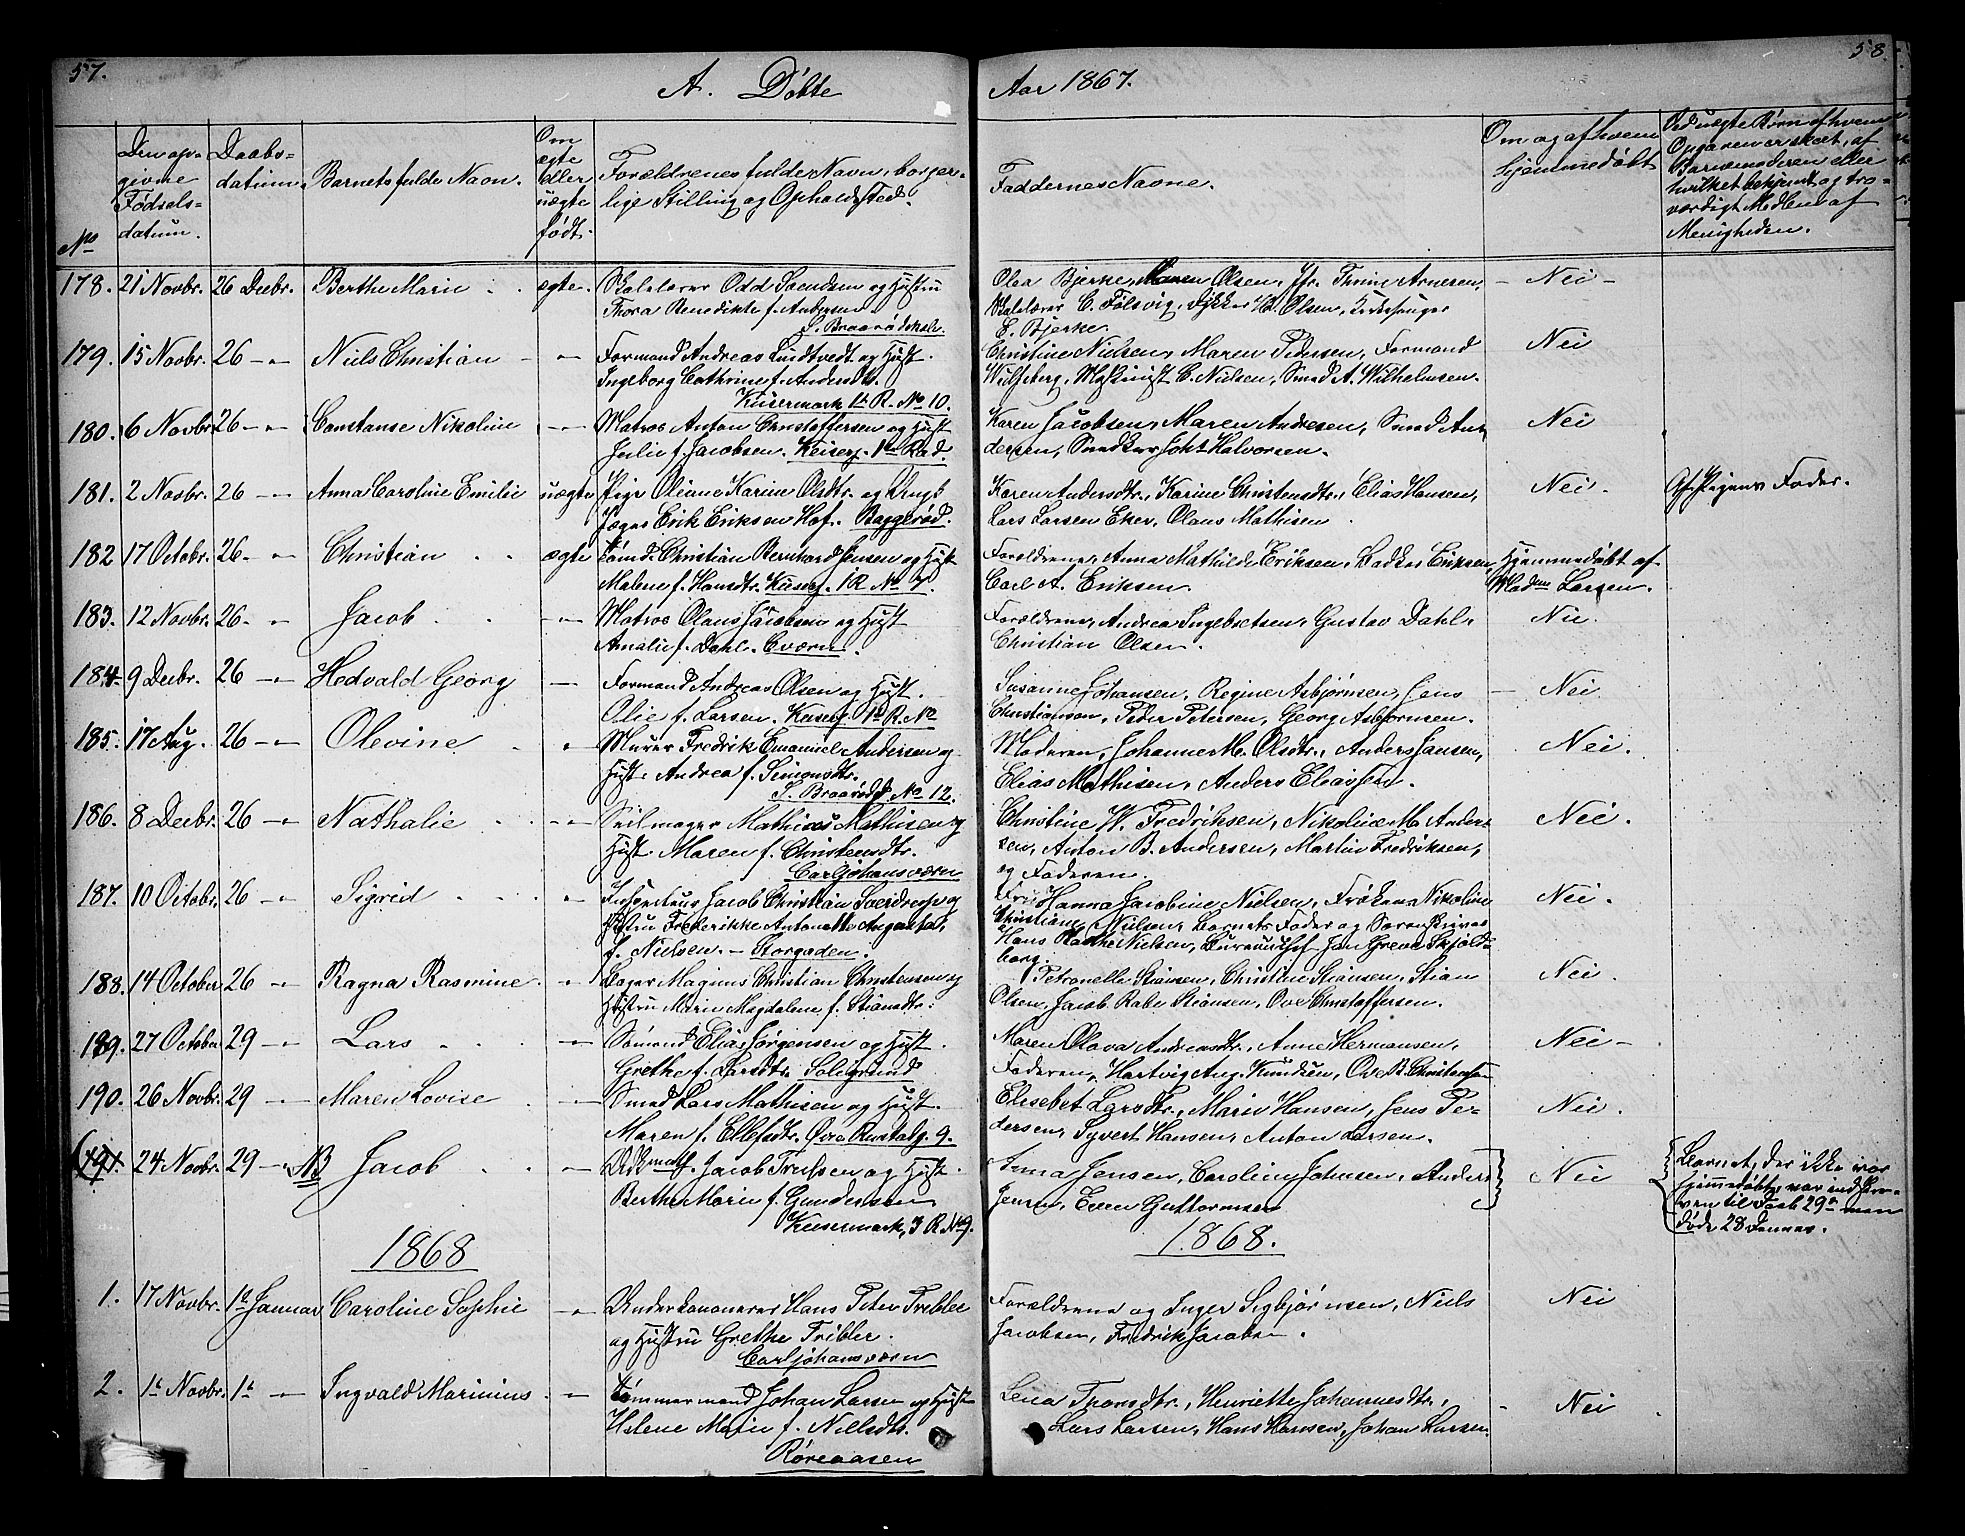 57.
A. Døbte
Aar 1867.
58.
No
Den opgivne Fødselsdatum.
Daabsdatum.
Barnets fulde Navn.
Om ægte eller uægte født.
Forældrenes fulde Navn, borgerlige Stilling og Opholdssted.
Faddernes Navne.
Om og af hvem hjemmedøbt
Ved uægte Børn af hvem Opgaven er skeet, af Barnemoderen eller hvilket bekjendt og troværdigt Medlem af Menigheden.
178. 21 Novbr. 26 Decbr. Berthe Marie ægte. Skolelærer Odd Svendsen og Hustru Olea Bjerke, Maren Olsen, Jfr. Thrine Arnesen, – Nei –
Thora Benedikte f. Andersen Skolelærer C. Følsvig, Dykker H. Olsen, Kirkesanger
S. Braarødskole. E. Bjerke.
179. 15 Novbr. 26 –"– Niels Christian –"– Formand Andreas Lindtvedt og Hust. Christine Nielsen, Maren Pedersen, Formand Nei
Ingeborg Cathrine f. Andersdtr. Wulfsberg, Maskinist C. Nielsen, Smed A. Wilhelmsen.
Keisermark 1st R. No 10.
180. 6 Novbr. 26 –"– Constanse Nikoline –"– Matros Anton Christoffersen og Hust Karen Jacobsen, Maren Andresen, Smed An- Nei
Julie f. Jacobsen. Keiserg. 1ste Rad. dersen, Snedker Johs Halvorsen.
181. 2 Novbr. 26 –"– Anna Caroline Emilie uægte Pige Oliane Karine Olsdtr. og Ungk Karen Andersdtr., Karine Christensdtr., Elias Hansen, Nei. Af Pigens Fader.
Jæger Erik Eriksen Hof. Baggerød. Lars Larsen Eker, Olaus Mathisen
182 17 Octobr. 26 –"– Christian ægte Sømd. Christian Bernhard Jensen og Hust Forældrene, Anna Mathilde Eriksen, Badker Eriksen, Hjemmedøbt af
Malene f. Hansdtr. Keiserg. 1 R. No 7. Carl A. Eriksen Madme Larsen.
183. 12 Novbr. 26 –"– Jacob –"– Matros Olaus Jacobsen og Hust Forældrene, Andrea Ingebretsen, Gustav Dahl, Nei.
Amalie f. Dahl. Eværn. Christian Olsen.
184. 9 Decbr. 26 –"– Hedvald Georg –"– Formand Andreas Olsen og Hust. Susanne Johansen, Regine Asbjørnsen, Jens – Nei
Olie f. Larsen. Keiserg. 1st R. No Christiansen, Peder Petersen, Georg Asbjørnsen.
185. 17 Aug. 26 –"– Olevine " Murer Fredrik Emanuel Andersen og Moderen, Johanne M. Olsdtr., Anders Jansen, Nei.
Hust. Andrea f. Simonsdtr. Elias Mathisen, Anders Eliassen.
S. Braarød No 12.
186. 8 Decbr. 26 –"– Nathalie –"– Seilmager Mathias Mathisen og Christine W. Fredriksen, Nikoline M. Ander- Nei.
Hust. Maren f. Christensdtr. sen, Anton B. Andersen, Martin Fredriksen,
Carljohansværn og Faderen.
187. 10 Octobr. 26 –"– Sigrid –"– Inspecteur Jacob Christian Sverdrup og Fru Hanna Jacobine Nielsen, Frøken Nikoline Nei.
Hustru Frederikke Antonette Augusta, Christiane Nielsen, Barnets Fader og Sorenskriver
f. Nielsen. – Storgaden. Hans Rasthe Nielsen, Bureauchef Jan Greve Skjoldborg.
188. 14 October 26 –"– Ragna Rasmine –"– Bager Magnus Christian Christensen og Petronelle Stiansen, Christine Stiansen, Stian Nei.
Hustru Marie Magdalene f. Stiansdtr. Olsen, Jacob Rabe Stiansen, Ove Christoffersen.
189. 27 October 29 –"– Lars –"– Sømand Elias Jørgensen og Hust. Maren Olava Andreasdtr., Anne Hermansen, Nei –
Grethe f. Larsdtr. Solegrund Faderen, Hartvig Aug. Knudsen, Ove B. Christensen
190. 26 Novbr. 29 –"– Maren Lovise –"– Smed Lars Mathisen og Hust. Elisebet Larsdtr., Marie Hansen, Jens Pe- Nei.
Maren f. Ellefsdtr. Øvre Runstalg. 9. dersen, Syvert Hansen, Anton Larsen.
(191. 24 Novbr. 29 –"– NB Jacob –"– Jacob Truelsen og Hust. Anna Jensen, Caroline Johnsen, Anders Nei Barnet, der ikke var
Berthe Marie f. Gundersen Jensen, Even Guttormsen hjemmedøbt, var indskre-
Keisermark, 3 R. No 9. ven til Daab 29de men
døde 28 Dennes.
1868
1868.
1. 17 Novbr. 1st Januar Caroline Sophie –"– Underkanoneer Hans Peter Tribler Forældrene og Inger Sigbjørnsen, Niels Nei
og Hustru Grethe Tribler. Jacobsen, Fredrik Jacobsen.
Carljohansværn
2. 1st Novbr. 1st –"– Ingvald Marinius –"– Tømmermand Johan Larsen og Hust Lena Thorsdtr., Henriette Johannesdtr., Nei
Helene Marie f. Nillsdtr. Lars Larsen, Hans Hansen, Johan Larsen.
Røreaasen